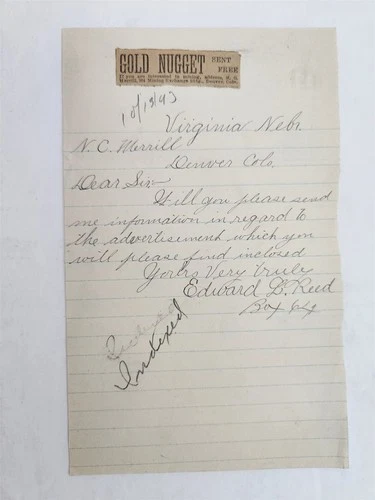 GOLD NUGGET SENT FREE
If you are interested in mining, address, N. C.
Merrill, 64 Mining Exchange Bldg., Denver, Colo.
10/13/93
Virginia Nebr.
N. C. Merrill
Denver Colo.
Dear Sir
Will you please send
me information in regard to
the advertisement which you
will please find inclosed
Yours Very Truly
Edward D. Reed
Box
Indexed